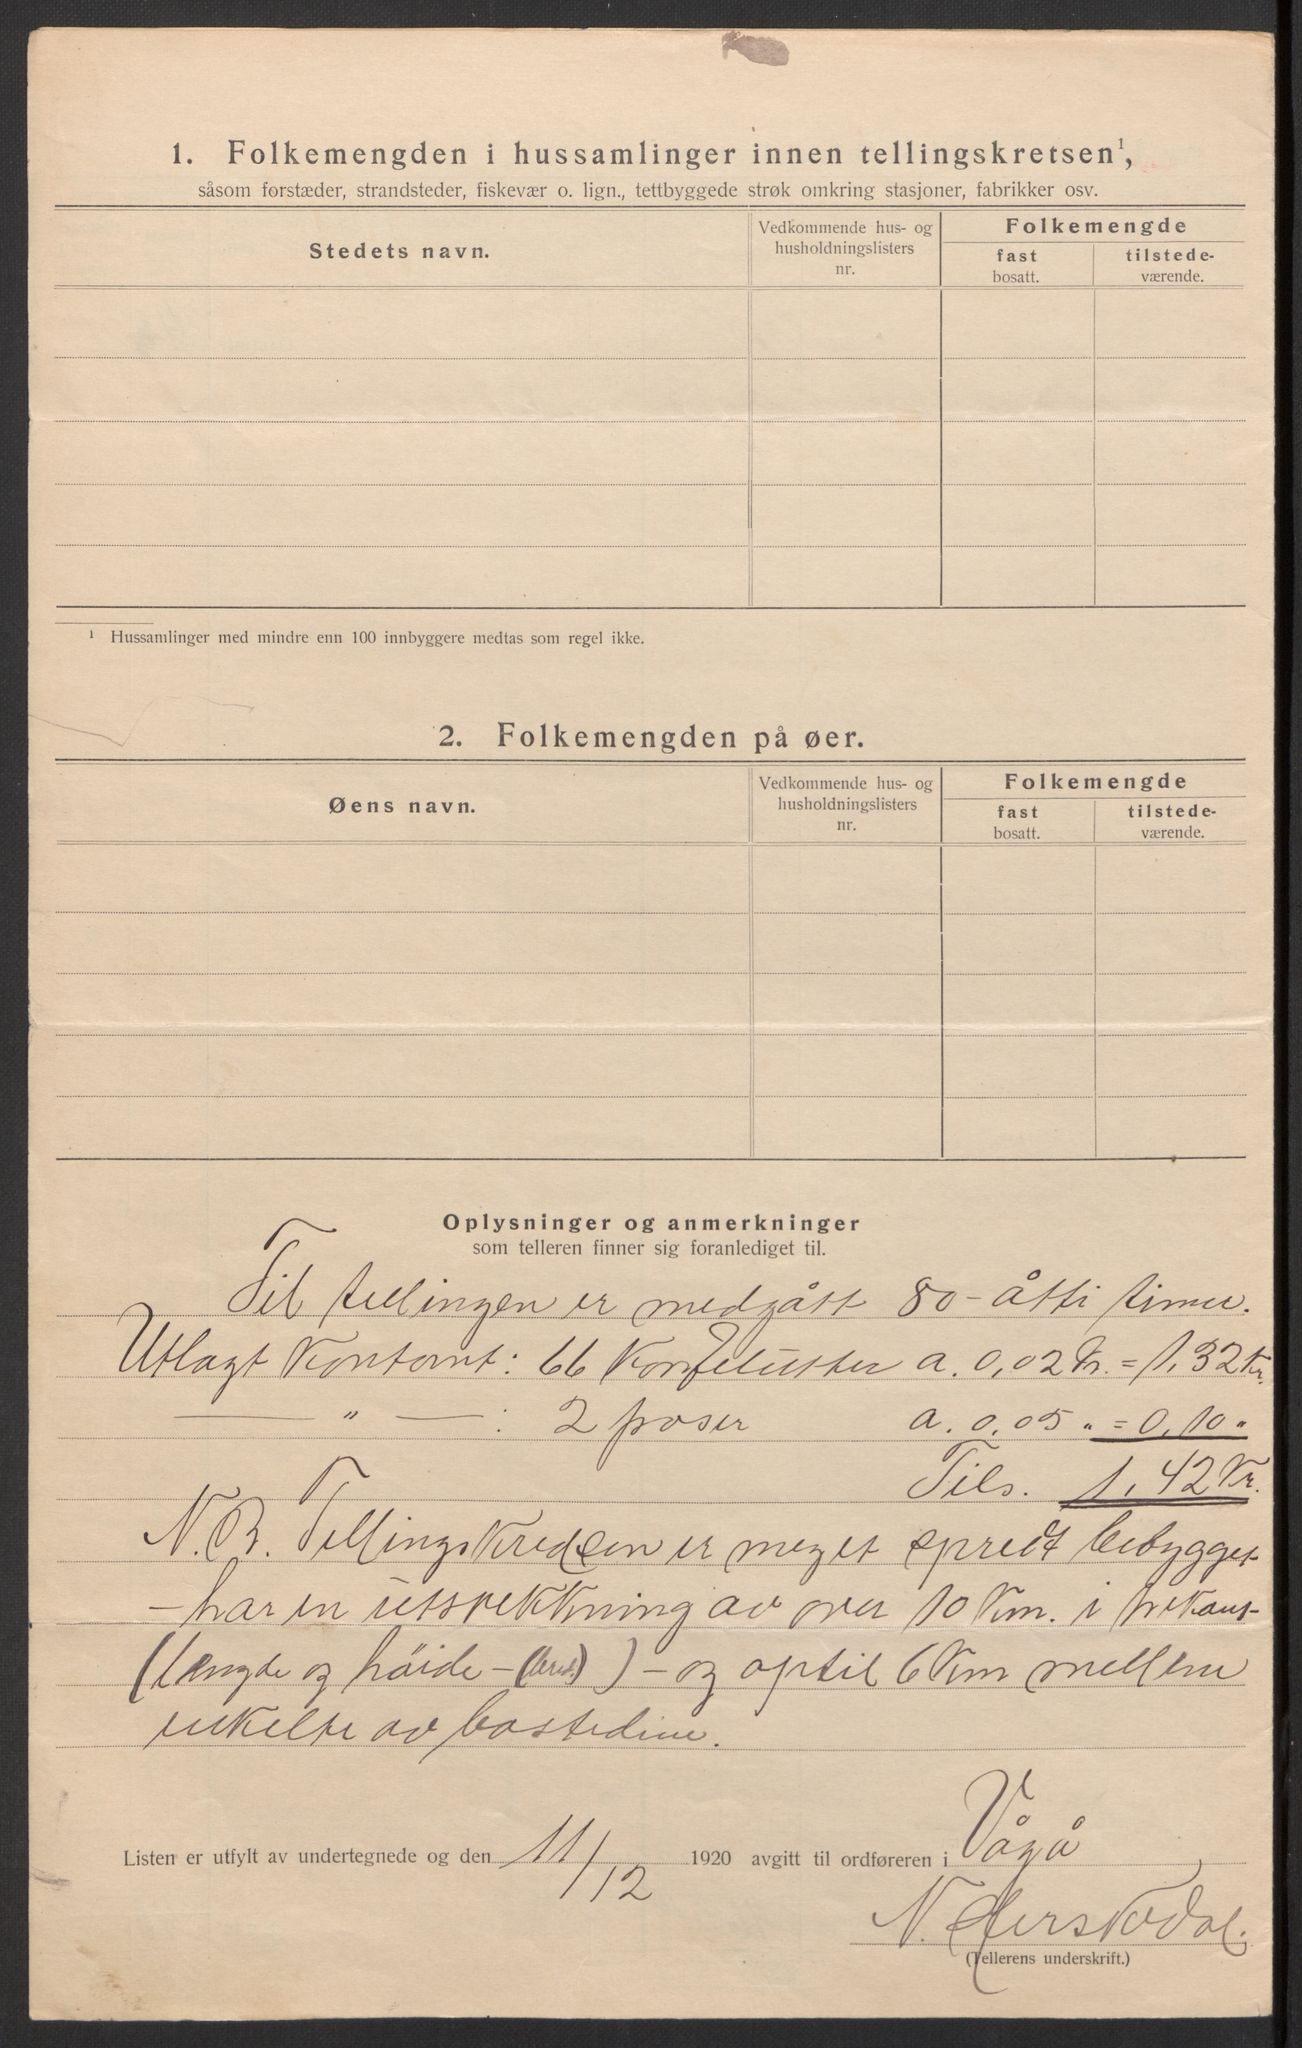 1. Folkemengden i hussamlinger innen tellingskretsen¹,
såsom forstæder, strandsteder, fiskevær o. lign., tettbyggede strøk omkring stasjoner, fabrikker osv.
Stedets navn.
Vedkommende hus- og
husholdningslisters
nr.
Folkemengde
fast
bosatt.
tilstede-
værende.
¹ Hussamlinger med mindre enn 100 innbyggere medtas som regel ikke.
2. Folkemengden på øer.
Øens navn.
Vedkommende hus- og
husholdningslisters
nr.
Folkemengde
fast
bosatt.
tilstede-
værende.
Oplysninger og anmerkninger
som telleren finner sig foranlediget til.
Til tellingen er medgått 80 - åtti timer.
Utlagt kontant: 66 a. 0,02 Kr. = 1,32 Kr.
— " — : 2 poser a. 0,05 " = 0,10 "
Tils. 1,42 Kr.
N.B. Tellingskredsen er meget spredt bebygget
- har en utstrekkning av over 10 Km. i
(længde og höide - (bred.)) - og optil 6 Km mellem
enkelte av bostedene.
Listen er utfylt av undertegnede og den 11/12 1920 avgitt til ordføreren i Vågå
N.
(Tellerens underskrift.)